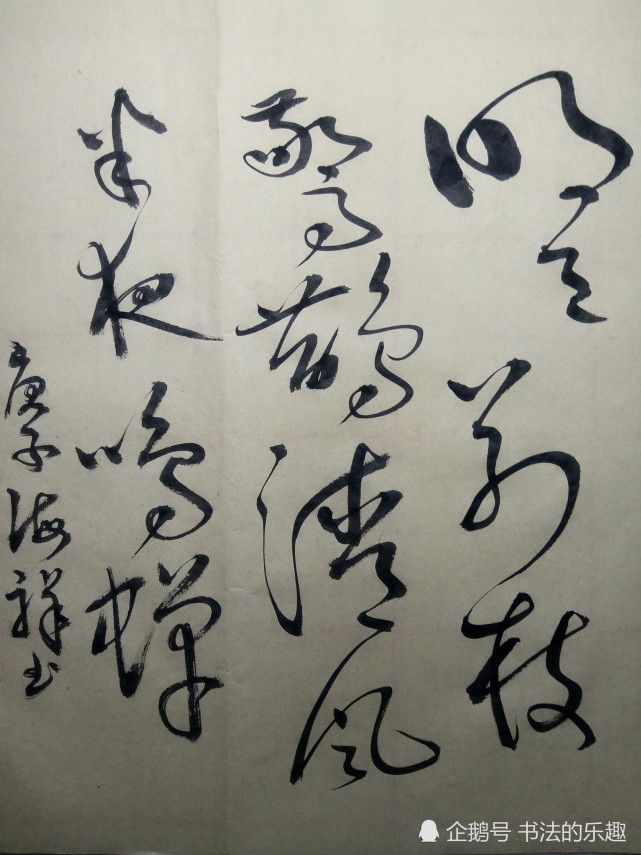 明月别枝
惊鹊清风
半夜鸣蝉
庚子海祥书
企鹅号 书法的乐趣